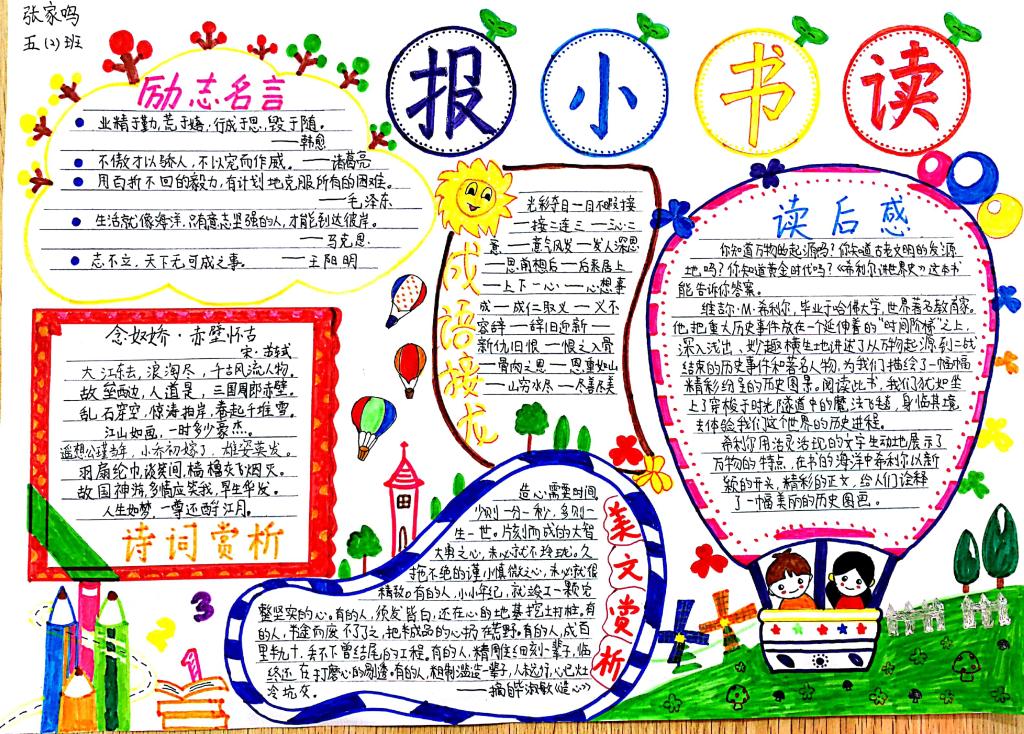 张家鸣
五(2)班
报小书读
励志名言
业精于勤,荒于嬉,行成于思,毁于随。
——韩愈
不傲才以骄人,不以宠而作威。——诸葛亮
用百折不回的毅力,有计划地克服所有的困难。
——毛泽东
生活就像海洋,只有意志坚强的人,才能到达彼岸。
——马克思.
志不立,天下无可成之事。——王阳明
成语接龙
光彩夺目—目不暇接
—接二连三—三心二
意—意气风发—发人深思
—思前想后—后来居上
—上下一心—心想事
成—成仁取义—义不
容辞—辞旧迎新—
新仇旧恨—恨之入骨
—骨肉之恩—恩重如山
—山穷水尽—尽善尽美
读后感
你知道万物的起源吗?你知道古老文明的发源
地吗?你知道黄金时代吗?《希利尔讲世界史》这本书
能告诉你答案。
维吉尔·M·希利尔,毕业于哈佛大学,世界著名教育家。
他把重大历史事件放在一个延伸着的“时间阶梯”之上,
深入浅出、妙趣横生地讲述了从万物起源到二战
结束的历史事件和著名人物,为我们描绘了一幅幅
精彩纷呈的历史图景。阅读此书,我们犹如坐
上了穿梭于时光隧道中的魔法飞毯,身临其境,
去体验我们这个世界的历史进程。
希利尔用活灵活现的文字生动地展示了
万物的特点,在书的海洋中希利尔以新
颖的开头,精彩的正文,给人们诠释
了一幅美丽的历史图画。
念奴娇·赤壁怀古
宋·苏轼
大江东去,浪淘尽,千古风流人物。
故垒西边,人道是,三国周郎赤壁。
乱石穿空,惊涛拍岸,卷起千堆雪。
江山如画,一时多少豪杰。
遥想公瑾当年,小乔初嫁了,雄姿英发。
羽扇纶巾谈笑间,樯橹灰飞烟灭。
故国神游,多情应笑我,早生华发。
人生如梦,一尊还酹江月。
诗词赏析
美文赏析
造心需要时间,
少则一分一秒,多则一
生一世。片刻而成的大智
大勇之心,未必就不玲珑。久
拖不绝的谨小慎微之心,未必就很
精致。有的人,小小年纪,就竣工一颗完
整坚实的心。有的人,须发皆白,还在心的地基挖土打桩。有
的人,半途而废不了了之,把半成品的心扔在荒野。有的人,成百
里半九十,丢下不曾结尾的工程。有的人,精雕细刻一辈子,临
终还在打磨心的剔透。有的人,粗制滥造一辈子,人未远行,心已灶
冷坑灰。
——摘自毕淑敏《造心》
3
2
1